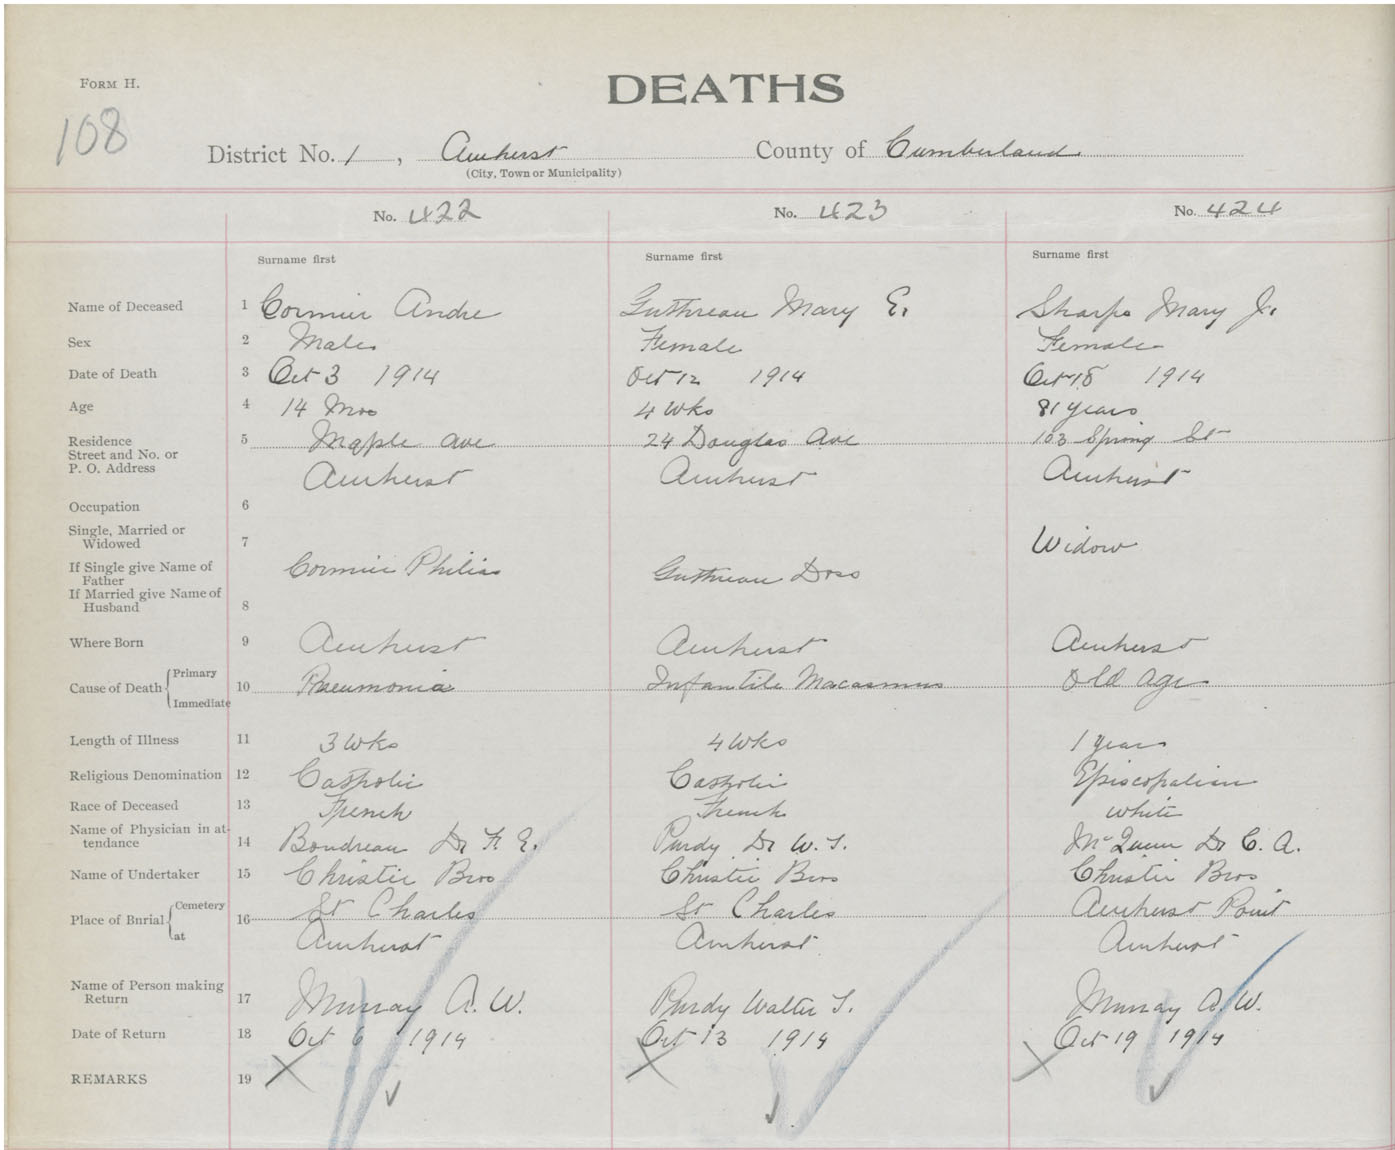 FORM H.
DEATHS
108
District No. 1, Amherst County of Cumberland
(City, Town or Municipality)
No. 422 No. 423 No. 424
Surname first Surname first Surname first
Name of Deceased 1 Cormier Andre Guthreau Mary E. Sharpe Mary J.
Sex 2 Male Female Female
Date of Death 3 Oct 3 1914 Oct 12 1914 Oct 18 1914
Age 4 14 Mos 4 Wks 81 years
Residence 5 Maple Ave 24 Douglas Ave 103 Spring St
Street and No. or
P. O. Address Amherst Amherst Amherst
Occupation 6
Single, Married or
Widowed 7 Widow
If Single give Name of
Father Cormier Philias Guthreau Doss
If Married give Name of
Husband 8
Where Born 9 Amherst Amherst Amherst
Cause of Death Primary 10 Pneumonia Infantile Macasmus Old Age
Immediate
Length of Illness 11 3 Wks 4 Wks 1 years
Religious Denomination 12 Catholic Catholic Episcopalian
Race of Deceased 13 French French White
Name of Physician in at-
tendance 14 Boudreau Dr F. E. Purdy Dr W. T. McQueen Dr C. A.
Name of Undertaker 15 Christie Bros Christie Bros Christie Bros
Place of Burial Cemetery 16 St Charles St Charles Amherst Point
at Amherst Amherst Amherst
Name of Person making
Return 17 Murray A. W. Purdy Walter T. Murray A. W.
Date of Return 18 Oct 6 1914 Oct 13 1914 Oct 19 1914
REMARKS 19